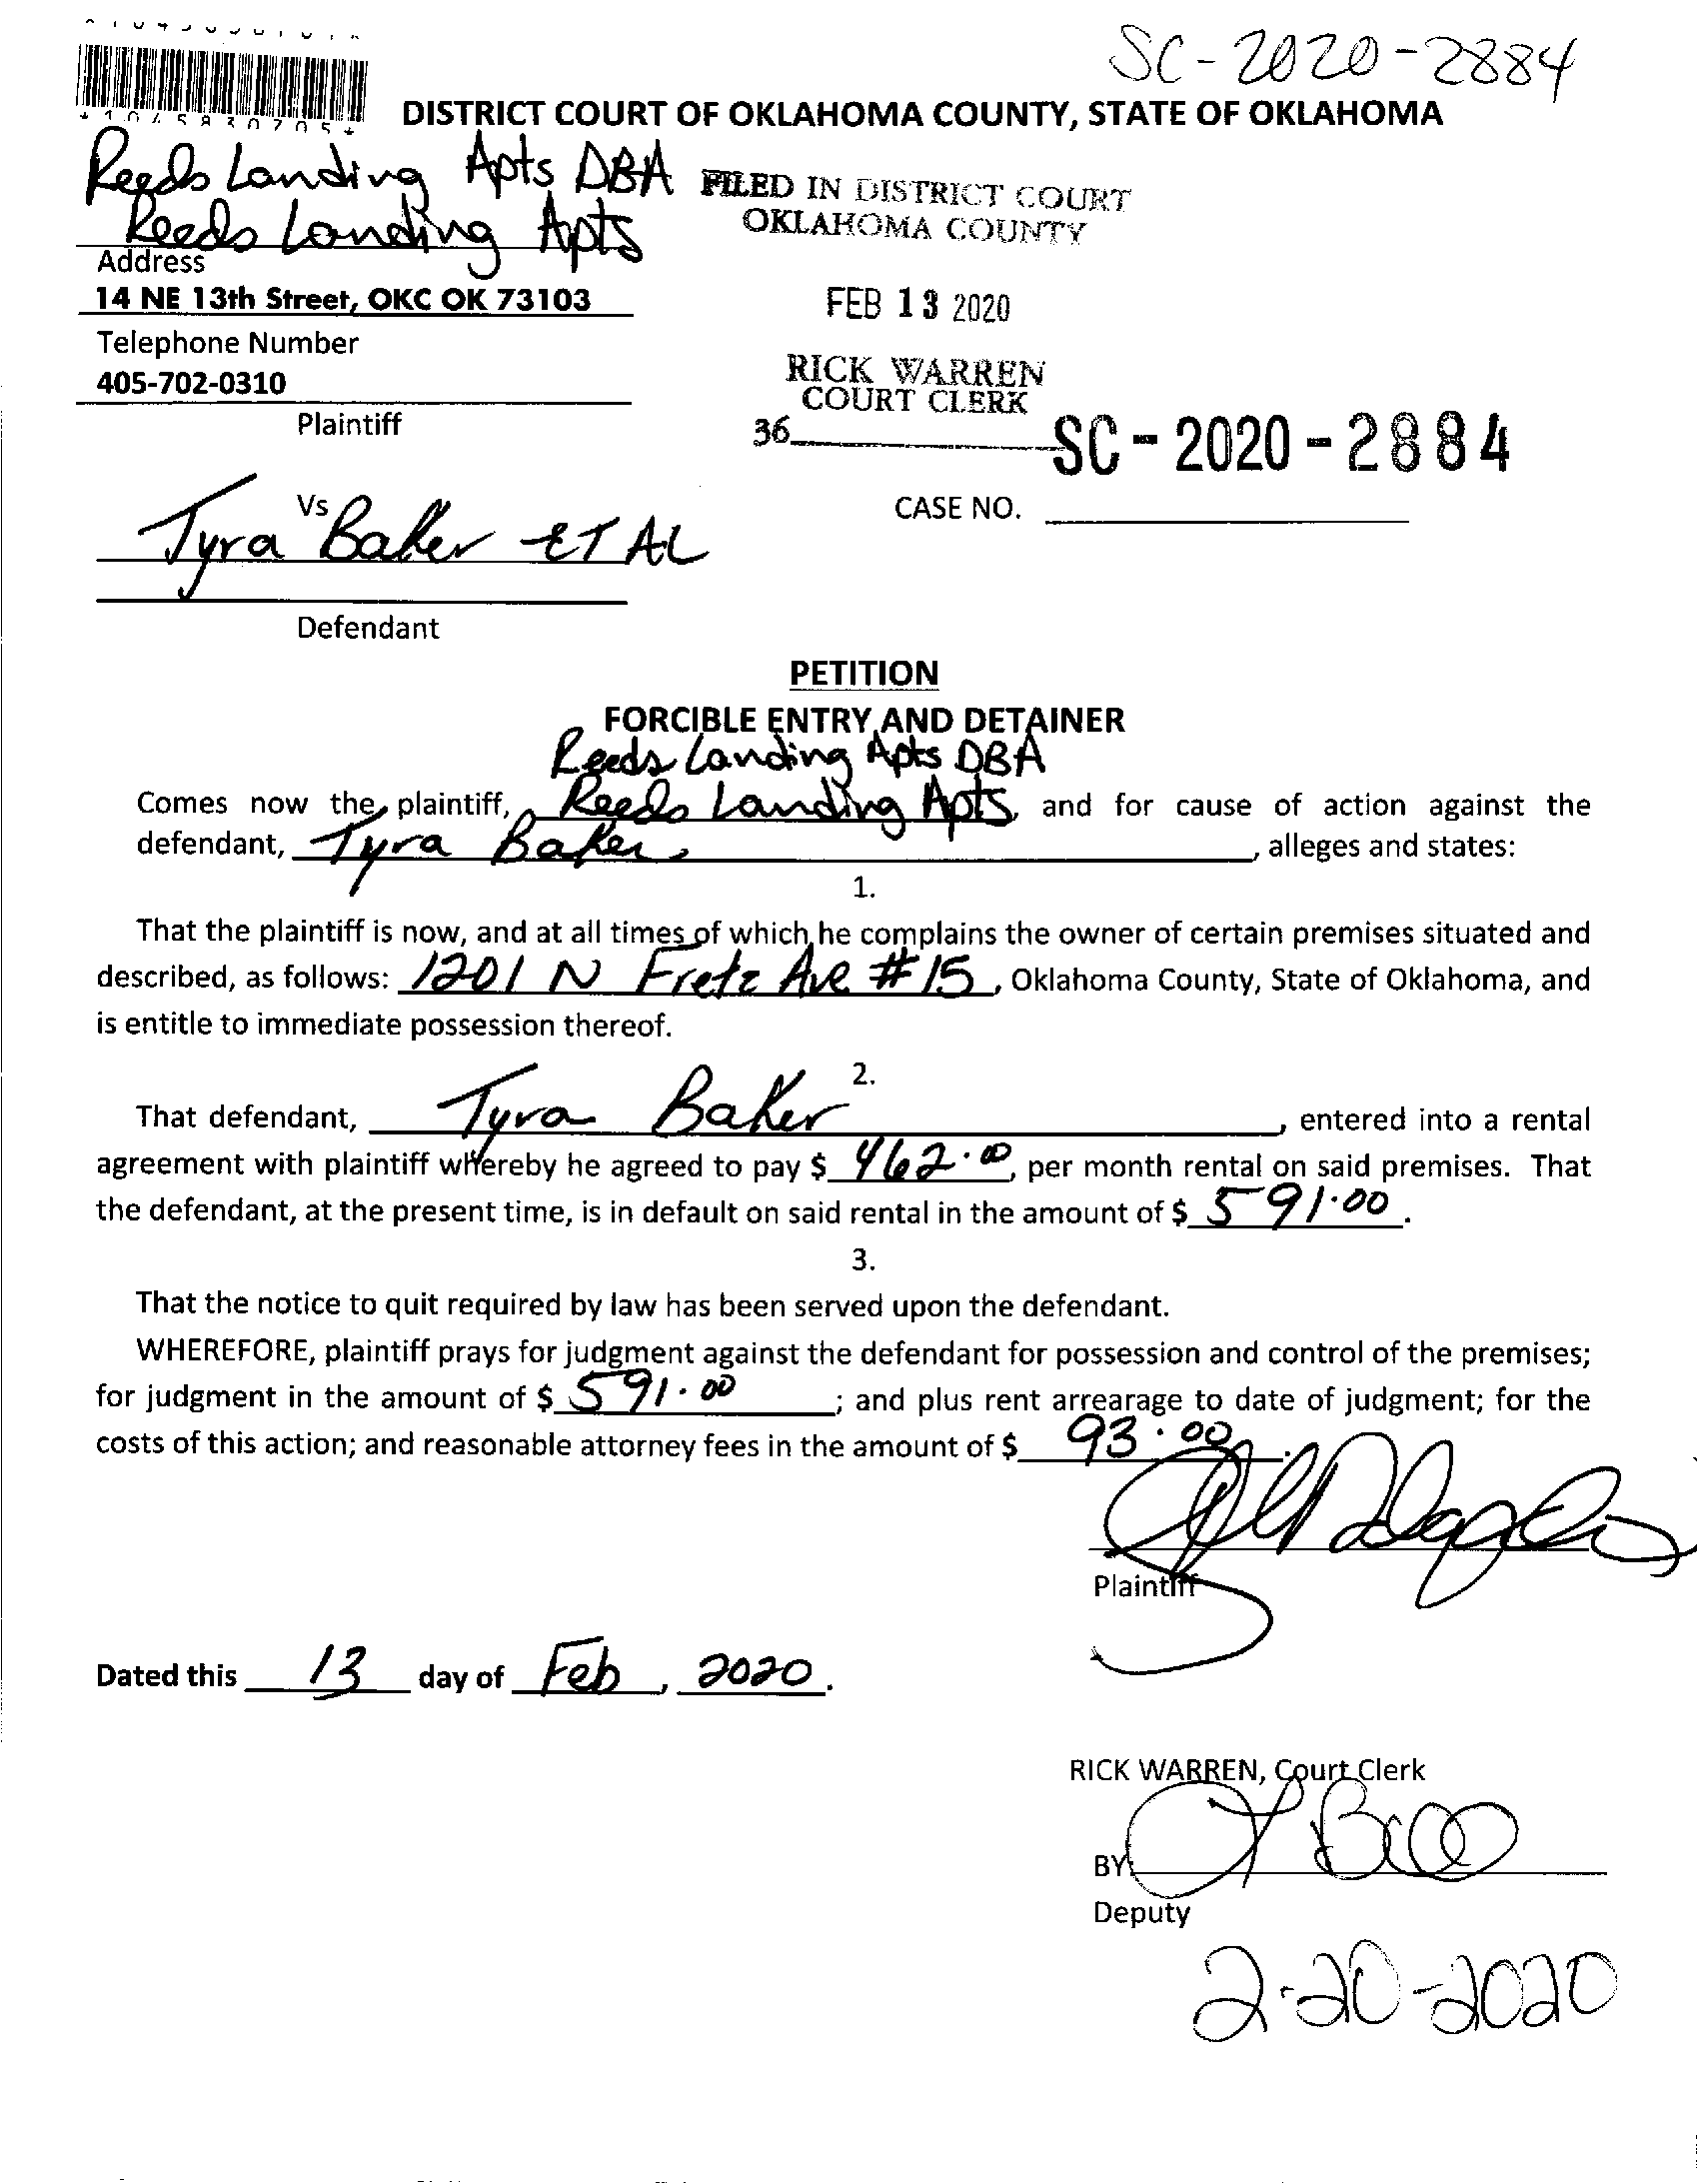 SC-2020-2884
DISTRICT COURT OF OKLAHOMA COUNTY, STATE OF OKLAHOMA
Reeds Landing Apts DBA
Reeds Landing Apts
FILED IN DISTRICT COURT
OKLAHOMA COUNTY
Address
14 NE 13th Street, OKC OK 73103
FEB 13 2020
Telephone Number
405-702-0310
RICK WARREN
COURT CLERK
Plaintiff
36
SC-2020-2884
Vs
CASE NO.
Tyra Baker ET AL
Defendant
PETITION
FORCIBLE ENTRY AND DETAINER
Reeds Landing Apts DBA
Comes now the plaintiff, Reeds Landing Apts, and for cause of action against the
defendant, Tyra Baker, , alleges and states:
1.
That the plaintiff is now, and at all times of which he complains the owner of certain premises situated and
described, as follows: 1201 N Fretz Ave #15, Oklahoma County, State of Oklahoma, and
is entitle to immediate possession thereof.
2.
That defendant, Tyra Baker, entered into a rental
agreement with plaintiff whereby he agreed to pay $ 462.00, per month rental on said premises. That
the defendant, at the present time, is in default on said rental in the amount of $ 591.00.
3.
That the notice to quit required by law has been served upon the defendant.
WHEREFORE, plaintiff prays for judgment against the defendant for possession and control of the premises;
for judgment in the amount of $ 591.00; and plus rent arrearage to date of judgment; for the
costs of this action; and reasonable attorney fees in the amount of $ 93.00.
Plaintiff
Dated this 13 day of Feb, 2020.
RICK WARREN, Court Clerk
BY
Deputy
2-20-2020